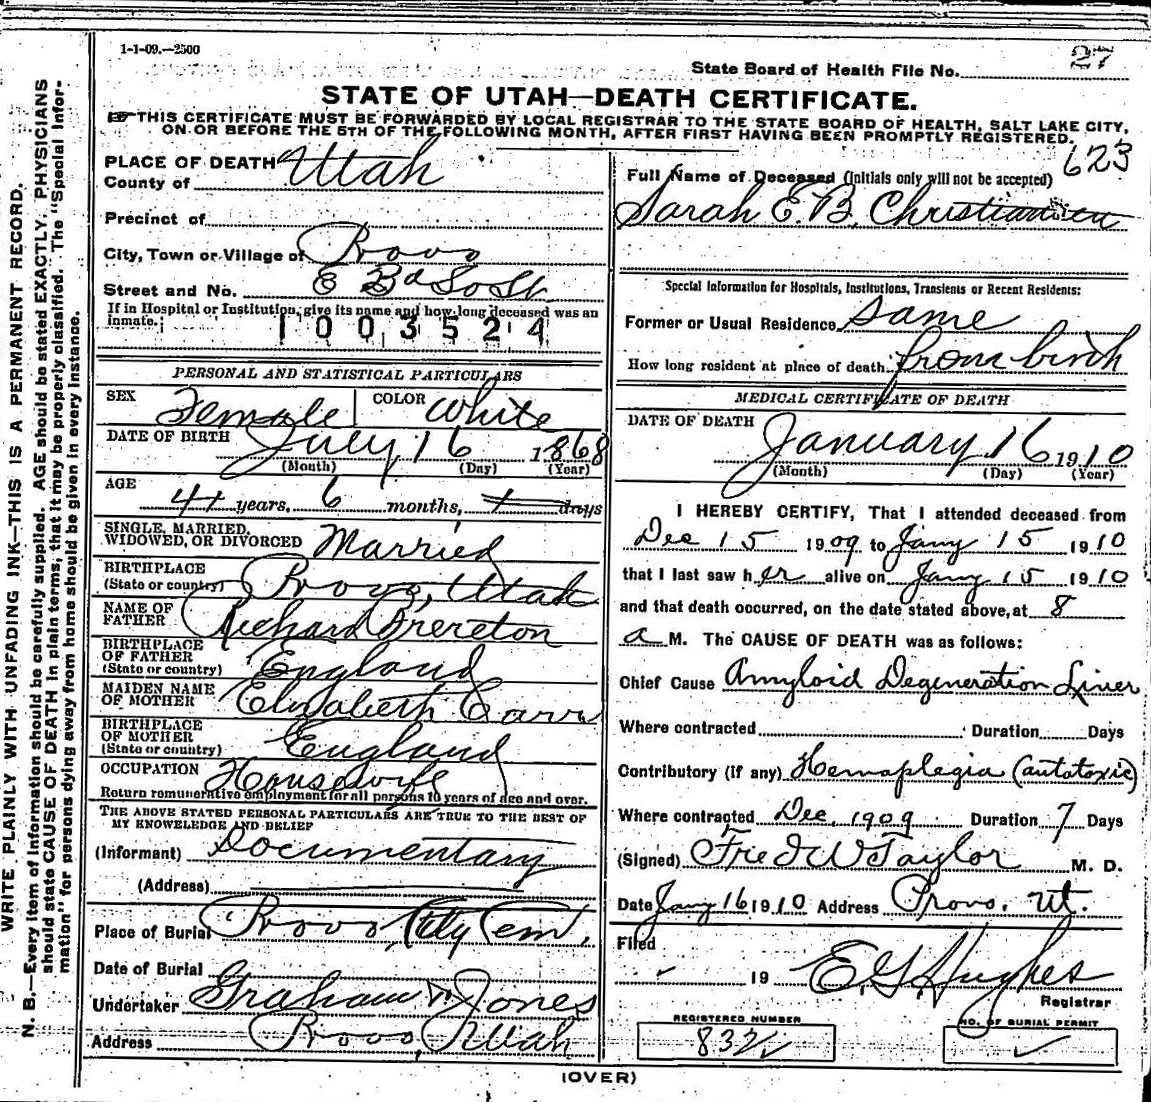 1-1-09.—2500
27
State Board of Health File No.
STATE OF UTAH—DEATH CERTIFICATE.
THIS CERTIFICATE MUST BE FORWARDED BY LOCAL REGISTRAR TO THE STATE BOARD OF HEALTH, SALT LAKE CITY,
ON OR BEFORE THE 5TH OF THE FOLLOWING MONTH, AFTER FIRST HAVING BEEN PROMPTLY REGISTERED.
WRITE PLAINLY WITH UNFADING INK—THIS IS A PERMANENT RECORD.
N. B.—Every item of information should be carefully supplied. AGE should be stated EXACTLY, PHYSICIANS
should state CAUSE OF DEATH in plain terms, that it may be properly classified. The "Special Infor-
mation" for persons dying away from home should be given in every instance.
PLACE OF DEATH
County of Utah
Precinct of
City, Town or Village of Provo
Street and No. E 3d So St
If in Hospital or Institution, give its name and how long deceased was an
inmate.
1003524
PERSONAL AND STATISTICAL PARTICULARS
SEX Female COLOR White
DATE OF BIRTH July 16 1868
(Month) (Day) (Year)
AGE
41 years, 6 months, days
SINGLE, MARRIED,
WIDOWED, OR DIVORCED Married
BIRTHPLACE
(State or country) Provo, Utah
NAME OF
FATHER Richard Brereton
BIRTHPLACE
OF FATHER
(State or country) England
MAIDEN NAME
OF MOTHER Elizabeth Carr
BIRTHPLACE
OF MOTHER
(State or country) England
OCCUPATION Housewife
Return remunerative employment for all persons 10 years of age and over.
THE ABOVE STATED PERSONAL PARTICULARS ARE TRUE TO THE BEST OF
MY KNOWLEDGE AND BELIEF
(Informant) Documentary
(Address)
Place of Burial Provo City Cem.
Date of Burial
Undertaker Graham & Jones
Address Provo, Utah
623
Full Name of Deceased (Initials only will not be accepted)
Sarah E. B. Christiansen
Special Information for Hospitals, Institutions, Transients or Recent Residents:
Former or Usual Residence Same
How long resident at place of death from birth
MEDICAL CERTIFICATE OF DEATH
DATE OF DEATH
January 16 1910
(Month) (Day) (Year)
I HEREBY CERTIFY, That I attended deceased from
Dec 15 1909 to Jany 15 1910
that I last saw her alive on Jany 15 1910
and that death occurred, on the date stated above, at 8
a M. The CAUSE OF DEATH was as follows:
Chief Cause Amyloid Degeneration Liver
Where contracted Duration Days
Contributory (if any) Hemaplegia (autotoxic)
Where contracted Dec. 1909 Duration 7 Days
(Signed) Fred W Taylor M. D.
Date Jany 16 1910 Address Provo. Ut.
Filed
19 E. G. Hughes
Registrar
REGISTERED NUMBER
832
NO. OF BURIAL PERMIT
(OVER)